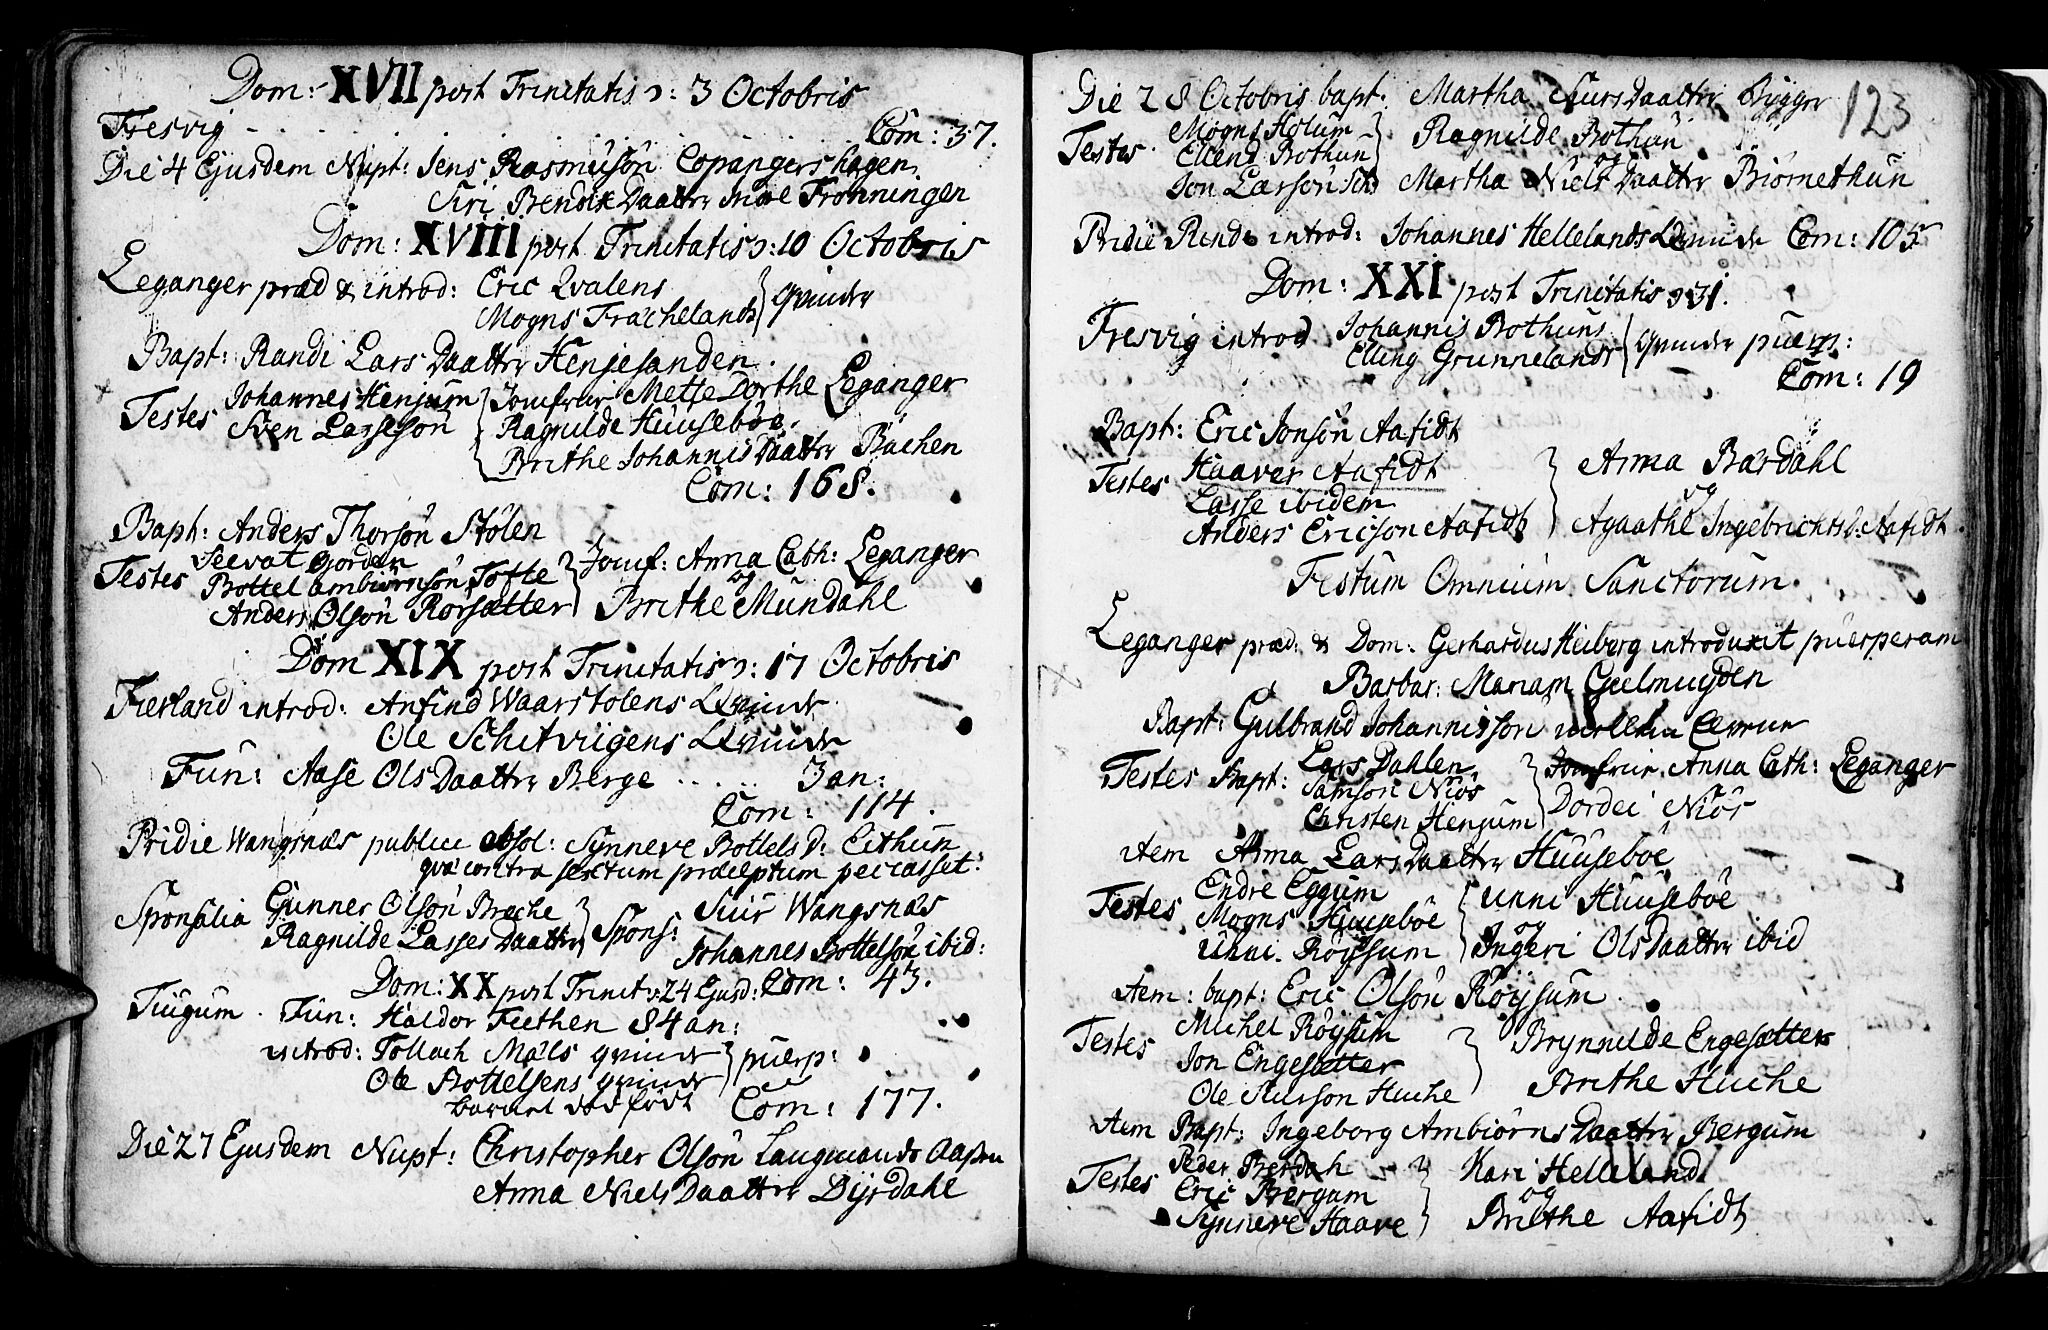 Dom: XVII post Trinitatis ɔ: 3 Octobris
Fresvig - . . . . . . . Com: 37.
Die 4 Ejusdem Nupt: Jens Rasmusön Copangershagen
Siri Bendix Daatter Indre Frønningen
Dom: XVIII post Trinitatis ɔ: 10 Octobris
Leganger præd & introd: Eric Qvalens
Mogns Frachelands } Qvinder
Bapt: Randi Lars Daatter Henjesanden.
Testes Johannes Henjum { Jomfrue Mette Dorthe Leganger
Sven Larsesön Ragnilde Huuseböe.
Brithe Johannis Daatter Bachen
Com: 168.
Bapt: Anders Thorsön Stölen
Testes Seevat Gorden } Jomf: Anna Cath: Leganger
Bottel ambiörnsön Tofte og
Anders Olsön Rorsætter Brithe Mundahl
Dom XIX post Trinitatis ɔ: 17 Octobris
Fierland introd: Anfind Waarstolens Qvinde
Ole Schetvigens Qvinde
Fun: Aase Ols Daatter Berge . . . . . 3 an:
Com: 114.
Pridie Wangsnæs publice absol: Synneve Bottels D: Eithun
qvæ contra sextum præceptum peccasset.
Sponsalia Gunner Olsön Breche } Spons: Siur Wangsnæs
Ragnilde Lasses Daatter Johannes Bottelsön ibid:
Dom: XX post Trinit ɔ: 24 Ejusd: Com: 43.
Tiugum. Fun: Haldor Feethen 84 an:
introd: Tollach Mæls qvinde } puerp:
Ole Bottelsens qvinde
barnet död födt Com: 177.
Die 27 Ejusdem Nupt: Christopher Olsön Laugmands
Anna Niels Daatter Dyrdahl
123
Die 28 Octobris bapt: Martha Siurs Daatter Bygger
Testes Mogns Holum } Ragnilde Bothun
Ellend Bothun og
Jon Larsön Martha Niels Daatter Biörnethun
Pridie introd: Johannes Hellelands Qvinde Com: 105
Dom: XXI post Trinitatis ɔ: 31.
Fresvig introd Johannis Bothuns
Elling Grunnelands } Qvinder puerp:
Com: 19
Bapt: Eric Jonsön Aafidt
Testes Haaver Aafidt } Anna Bærdahl
Lasse ibidem og
Anders Ericson Aafidt Agaathe Ingebrichts D: Aafidt.
Festum Omnium Sanctorum.
Leganger præd: & Dom. Gerhardus Heiberg introduxit puerperam
Barbar: Mariam Geelmuyden
Bapt: Gulbrand Johannisson
Testes Bapt: Lars Dahlen } Jomfrue Anna Cath: Leganger
Samson Niös Dordei Niös
Christen Henjum
item Anna Lars Daatter Huuseböe
Testes Endre Eggum } Unni Huuseböe
Mogns Huuseböe og
Unni Röysum Ingeri Ols Daatter ibid
item: bapt: Eric Olsön Röysum.
Testes Michel Röysum } Brynnilde Engesætter
Jon Engesætter
Ole Siursson Huche Brithe Huche
item Bapt: Ingeborg Ambiörns Daatter Bergum
Testes Peder Berdah } Kari Helleland
Eric Bergum og
Synneve Haave Brithe Aafidt